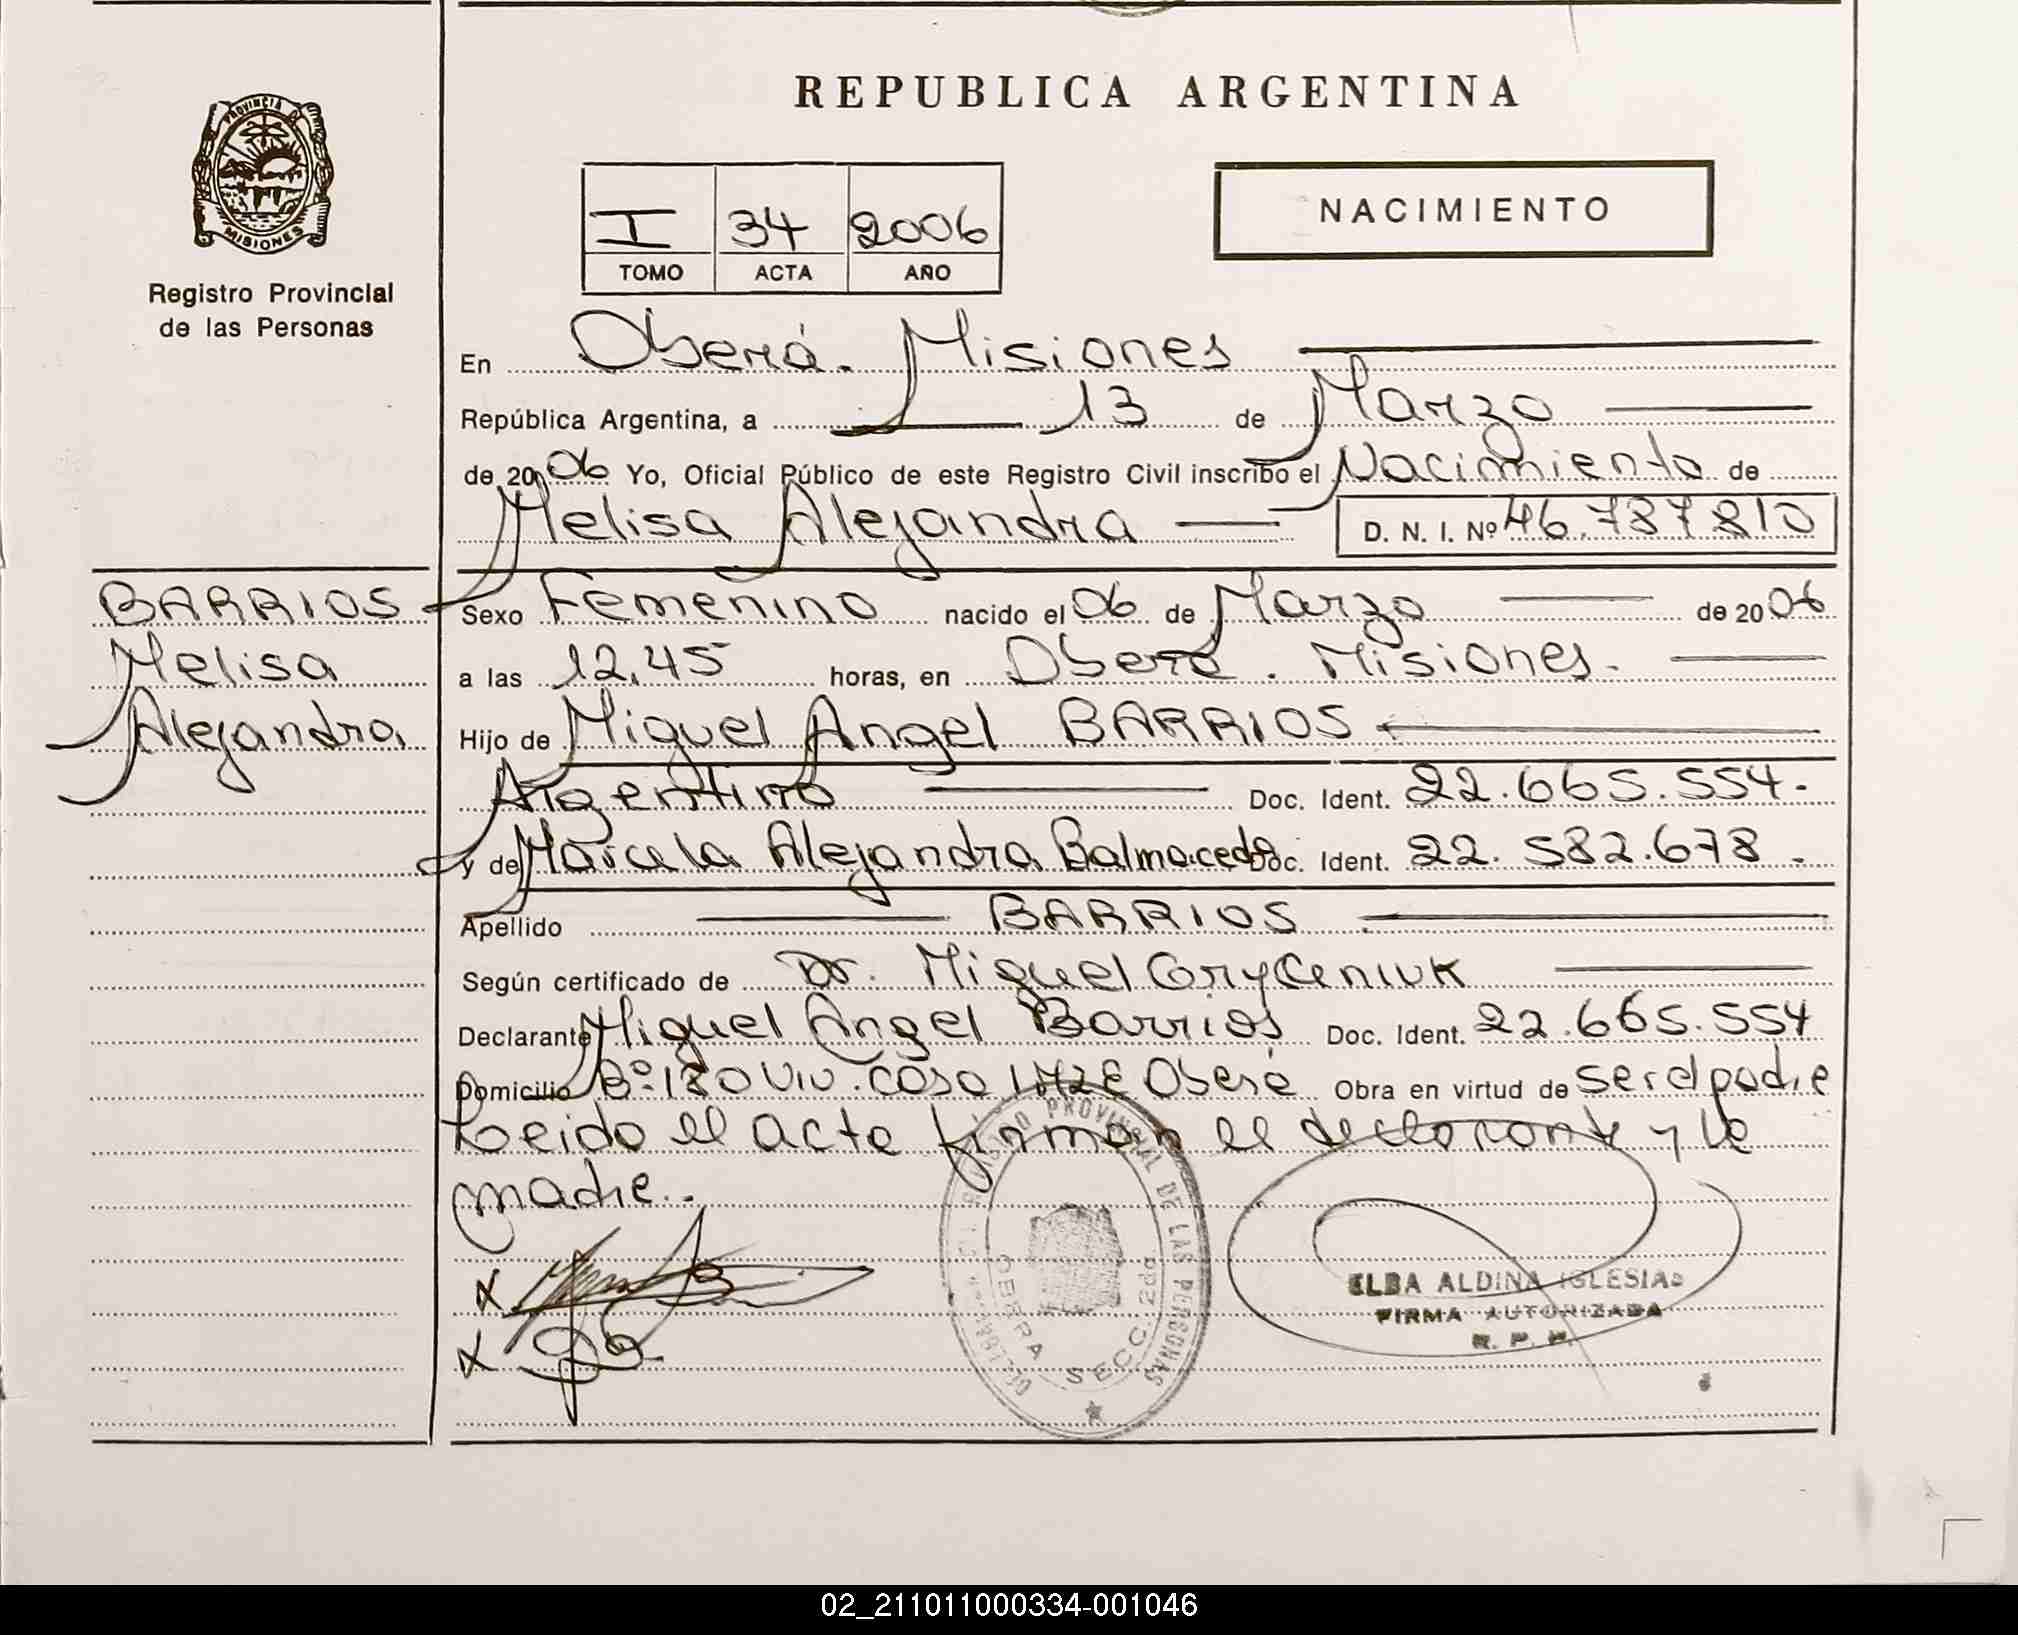 REPUBLICA ARGENTINA
PROVINCIA DE
MISIONES
Registro Provincial
de las Personas
I 34 2006
TOMO ACTA AÑO
NACIMIENTO
En Oberá. Misiones
República Argentina, a 13 de Marzo
de 2006 Yo, Oficial Público de este Registro Civil inscribo el Nacimiento de
Melisa Alejandra D. N. I. Nº 46.787810
BARRIOS
Melisa
Alejandra
Sexo Femenino nacido el 06 de Marzo de 2006
a las 12.45 horas, en Oberá. Misiones.
Hijo de Miguel Angel BARRIOS
Argentino Doc. Ident. 22.665.554.
y de Marcela Alejandra Balmaceda Doc. Ident. 22.582.678.
Apellido BARRIOS
Según certificado de Dr. Miguel Gryceniuk
Declarante Miguel Angel Barrios Doc. Ident. 22.665.554
Domicilio Bº 180 Viv. Casa Oberá Obra en virtud de ser el padre
Leido el acta firman el declarante y la
madre.
PROVINCIAL DE LAS PERSONAS
OBERA SECC. 2da
ELBA ALDINA IGLESIAS
FIRMA AUTORIZADA
R. P. P.
02_211011000334-001046